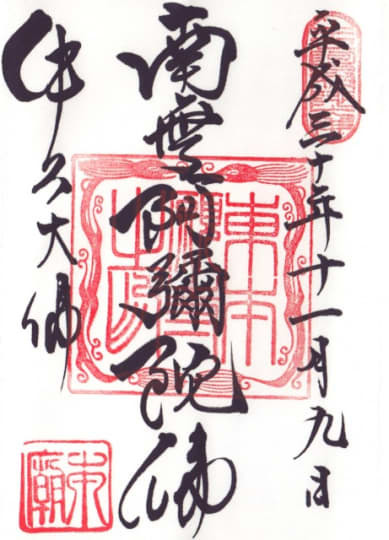 平成三十年十一月九日
南無阿彌陀佛
牛久大佛
東本
之印
本廟